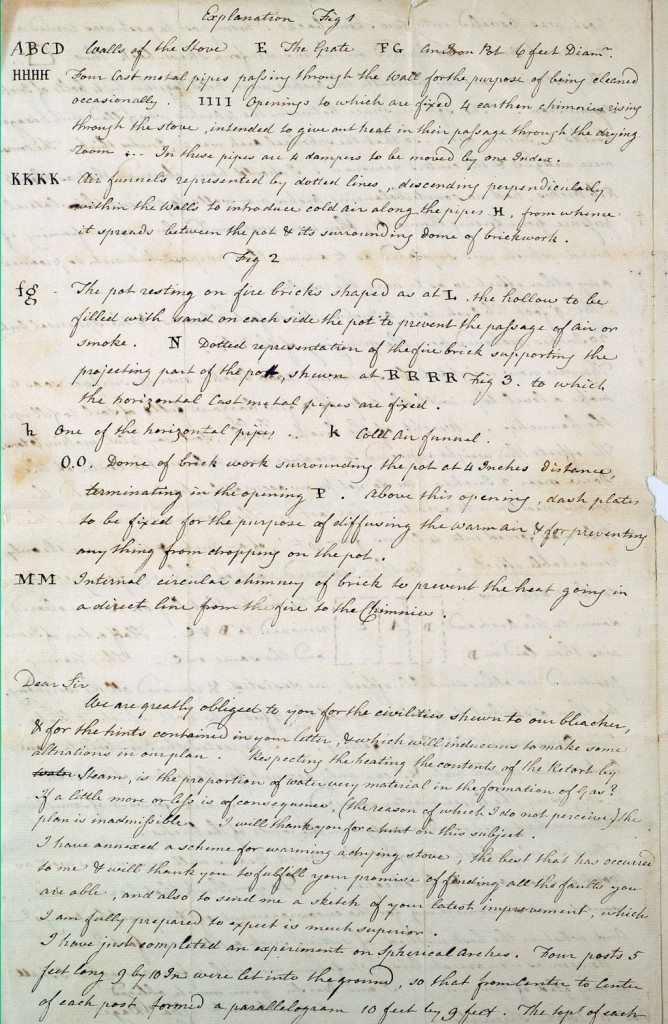 Explanation Fig 1
ABCD Walls of the Stove E The Grate FG An Iron Pot 6 feet Diamr.
HHHH Four Cast metal pipes passing through the Wall for the purpose of being cleaned
occasionally. IIII Openings to which are fixed 4 earthen chimnies rising
through the stove, intended to give out heat in their passage through the drying
room ... In these pipes are 4 dampers to be moved by one Index.
KKKK Air funnels represented by dotted lines, descending perpendicularly
within the walls to introduce cold air along the pipes H, from whence
it spreads between the pot & its surrounding dome of brickwork.
Fig 2
fg - The pot resting on fire bricks shaped as at L. the hollow to be
filled with sand on each side the pot to prevent the passage of air or
smoke. N Dotted representation of the fire brick supporting the
projecting part of the pot, shewn at RRRR Fig 3. to which
the horizontal Cast metal pipes are fixed.
h One of the horizontal pipes. k Cold Air funnel.
O.O. Dome of brick work surrounding the pot at 4 Inches distance,
terminating in the opening P. Above this opening, dash plates
to be fixed for the purpose of diffusing the warm air & for preventing
any thing from dropping on the pot.
MM Internal circular chimney of brick to prevent the heat going in
a direct line from the fire to the Chimnies.
Dear Sir
We are greatly obliged to you for the civilities shewn to our bleacher,
& for the hints contained in your letter, & which will induce us to make some
alterations in our plan. Respecting the heating the contents of the Retort by
water Steam, is the proportion of water very material in the formation of Gas?
If a little more or less is of consequence, (the reason of which I do not perceive) the
plan is inadmissible. I will thank you for a hint on this subject.
I have annexed a scheme for warming a drying stove, the best that has occurred
to me & will thank you to fulfill your promise of finding all the faults you
are able, and also to send me a sketch of your latest improvement, which
I am fully prepared to expect is much superior.
I have just completed an experiment on Spherical Arches. Four posts 5
feet long 9 by 10 In were let into the ground, so that from Center to Center
of each post formed a parallelogram 10 feet by 9 feet. The tops of each